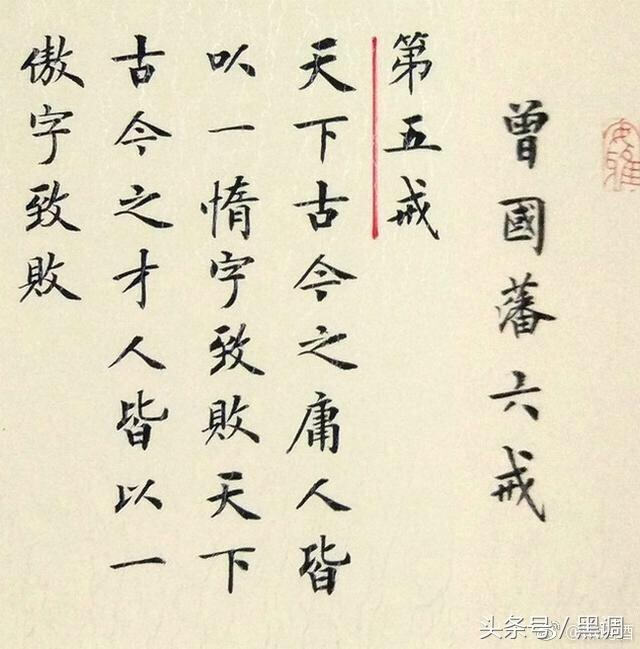 曾國藩六戒
第五戒
天下古今之庸人皆
以一惰字致敗天下
古今之才人皆以一
傲字致敗
头条号/黑调